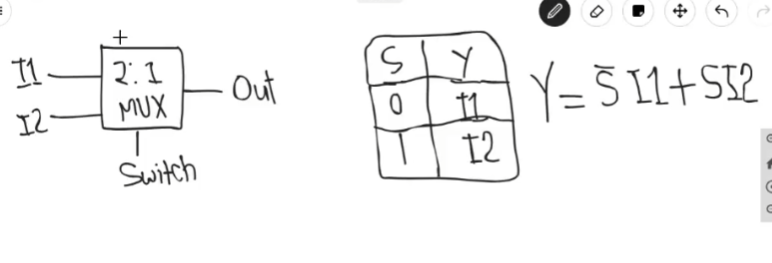 I1
I2
+
2:1
MUX
Out
Switch
S Y
0 I1
1 I2
Y = S̅ I1 + SI2